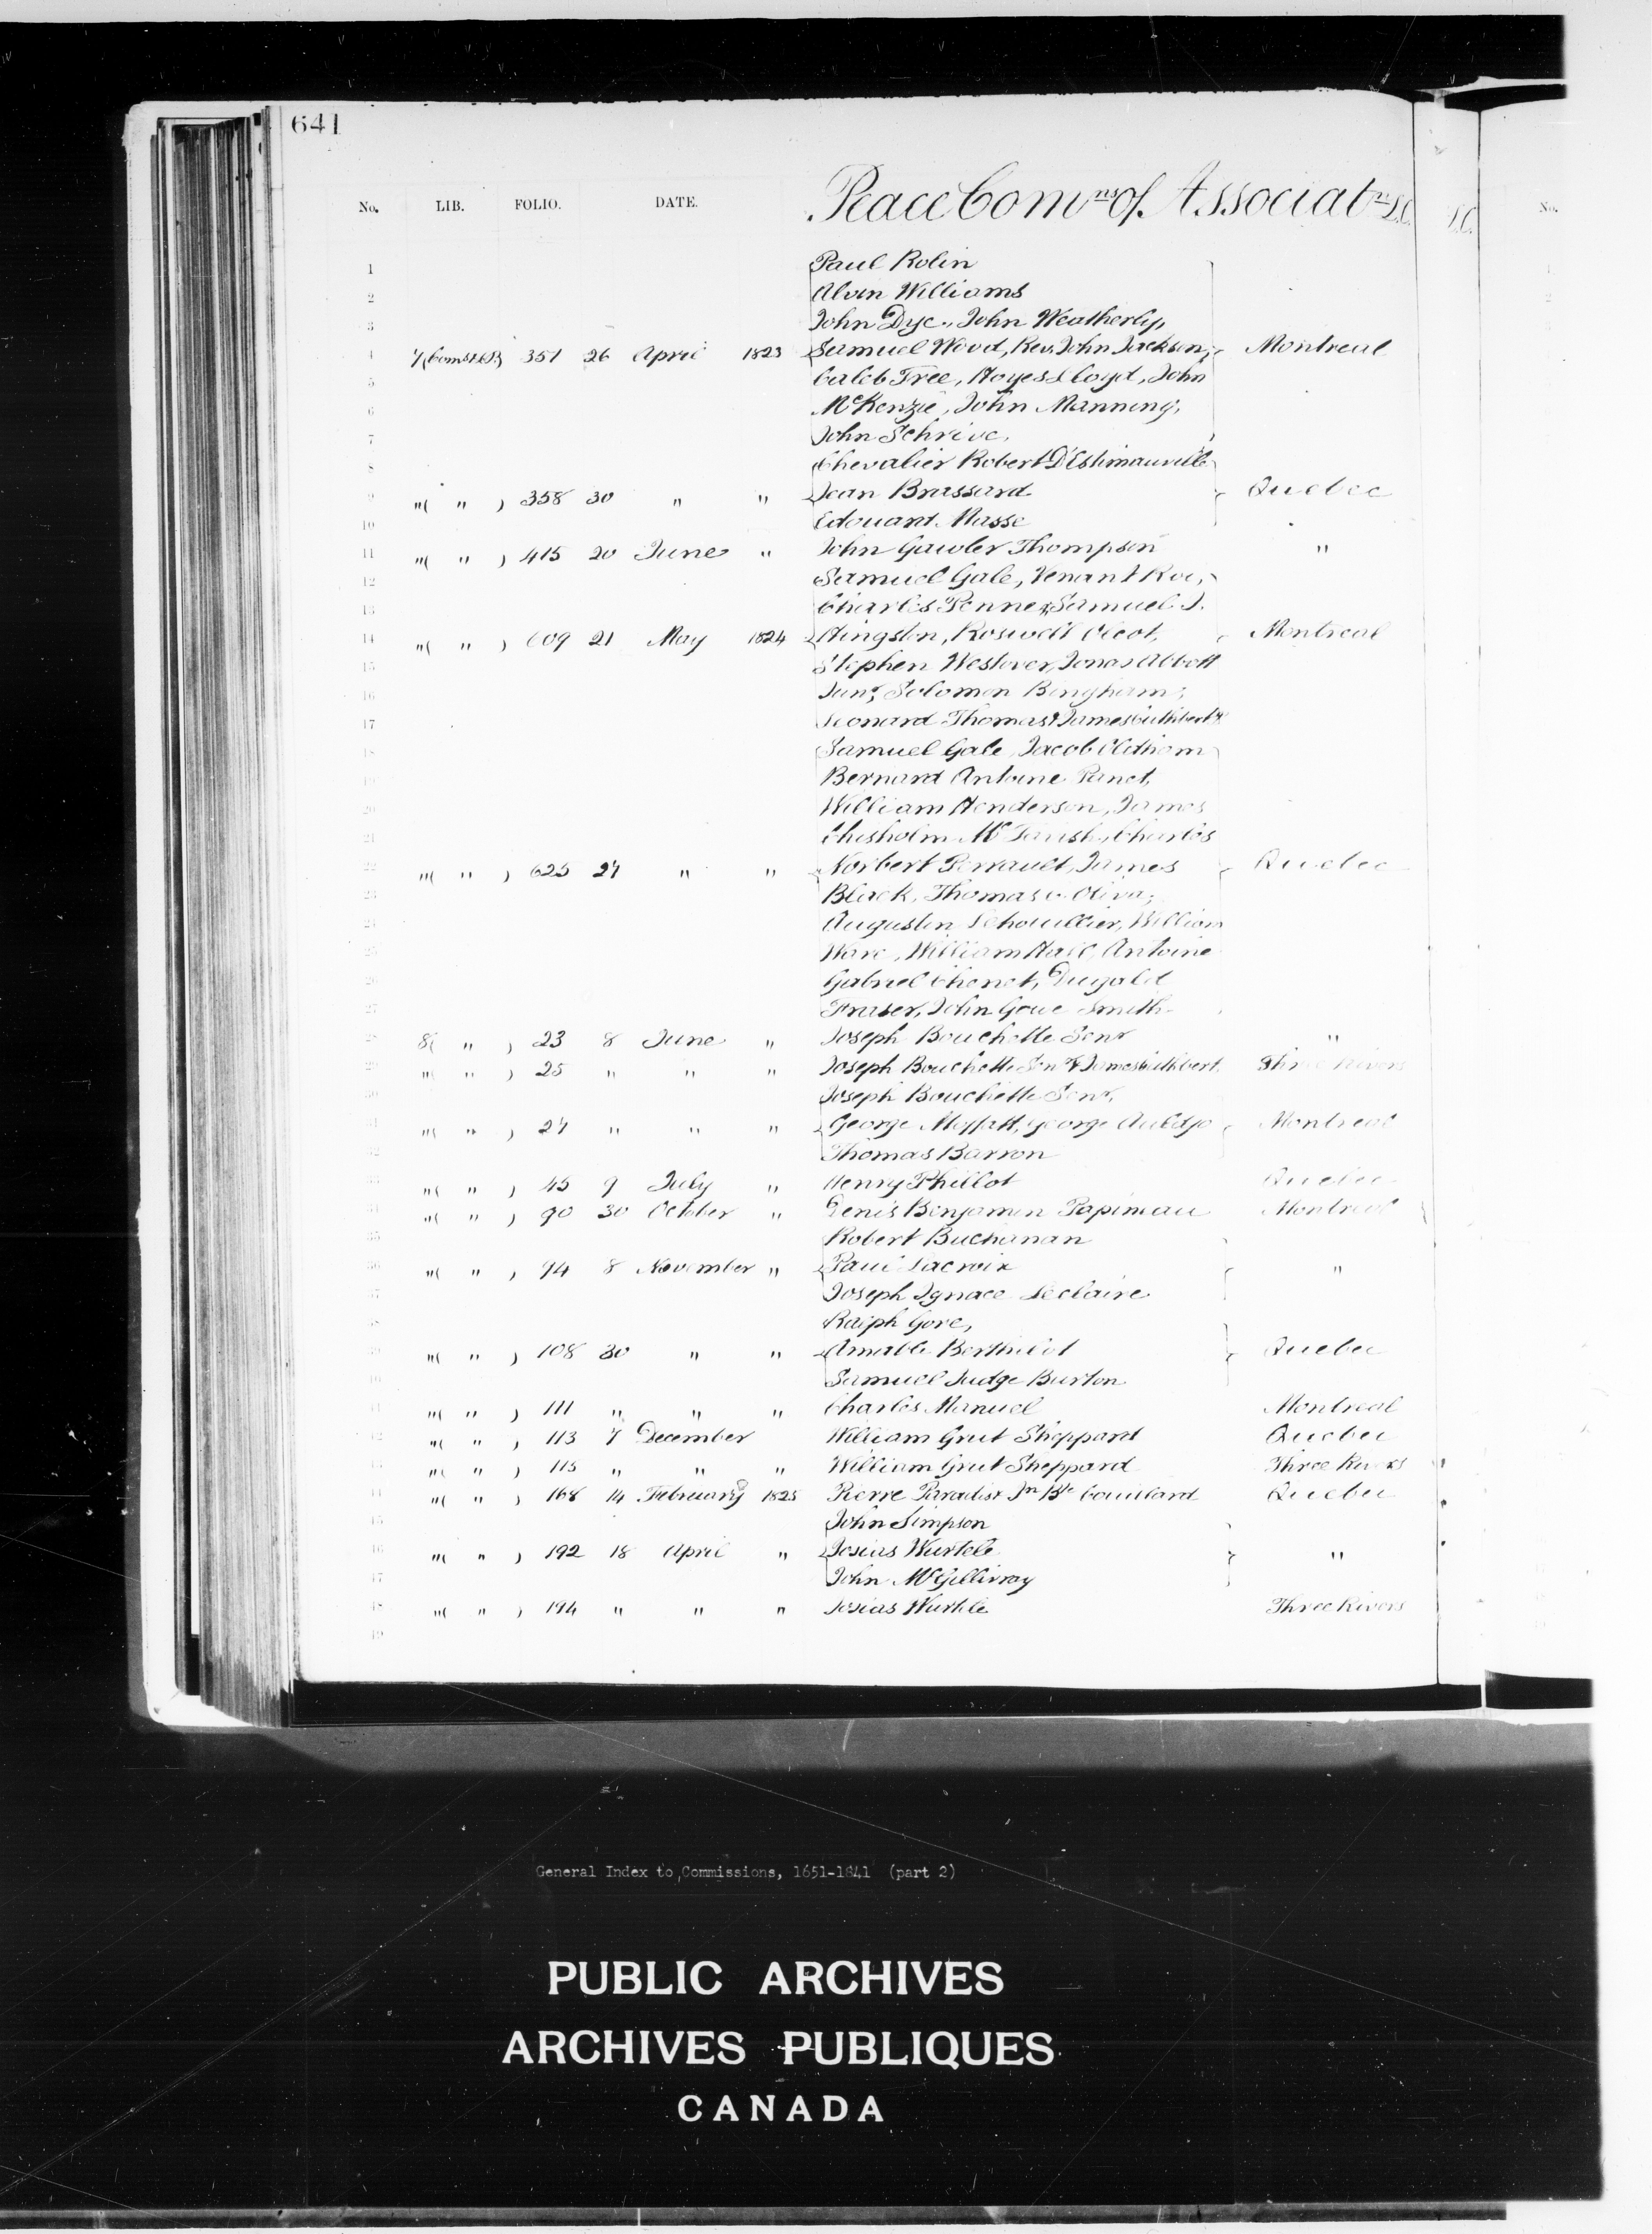 641
No. LIB. FOLIO. DATE. Peace Comns of Associatn L.C. L.C. No.
1 Paul Rolin
2 Alvin Williams
3 John Dye, John Weatherly,
4 7( ) 351 26 April 1823 Samuel Wood, Rev. John Jackson, Montreal
5 Caleb Tree, Hoyes Lloyd, John
6 McKenzie, John Manning,
7 John Schrive.
8 Chevalier Robert D'Estimauville
9 "( " ) 358 30 " " Jean Brassard Quebec
10 Edouard Masse
11 "( " ) 415 20 June " John Gawler Thompson "
12 Samuel Gale, Venant Roi,
13 Charles Penner, Samuel J.
14 "( " ) 609 21 May 1824 Hingston, Roswell Olcot, Montreal
15 Stephen Westover, Jonas Abbott
16 Junr, Solomon Bingham,
17 Leonard Thomas & James Cuthbert
18 Samuel Gale, Jacob Oldham
19 Bernard Antoine Panet,
20 William Henderson, James
21 Chisholm McTavish, Charles
22 "( " ) 625 27 " " Norbert Perrault, James Quebec
23 Black, Thomas Oliva,
24 Augustin Lehouillier, William
25 Ware, William Hall, Antoine
26 Gabriel Chenet, Dugald
27 Fraser, John Gowe Smith
28 8( " ) 23 8 June " Joseph Bouchette Senr "
29 "( " ) 25 " " " Joseph Bouchette Senr & James Cuthbert Three Rivers
30 Joseph Bouchette Senr,
31 "( " ) 27 " " " George Moffatt, George Auldjo Montreal
32 Thomas Barron
33 "( " ) 45 9 July " Henry Phillot Quebec
34 "( " ) 90 30 October " Denis Benjamin Papineau Montreal
35 Robert Buchanan
36 "( " ) 94 8 November " Paul Lacroix "
37 Joseph Ignace Leclaire
38 Ralph Gore,
39 "( " ) 108 30 " " Amable Berthelot Quebec
40 Samuel Judge Burton
41 "( " ) 111 " " " Charles Manuel Montreal
42 "( " ) 113 7 December William Grut Sheppard Quebec
43 "( " ) 115 " " " William Grut Sheppard Three Rivers
44 "( " ) 168 14 February 1825 Pierre Paradis & Jn Bte Couillard Quebec
45 John Simpson
46 "( " ) 192 18 April " Josias Wurtele "
47 John McGillivray
48 "( " ) 194 " " " Josias Wurtele Three Rivers
49
General Index to Commissions, 1651-1841 (part 2)
PUBLIC ARCHIVES
ARCHIVES PUBLIQUES
CANADA